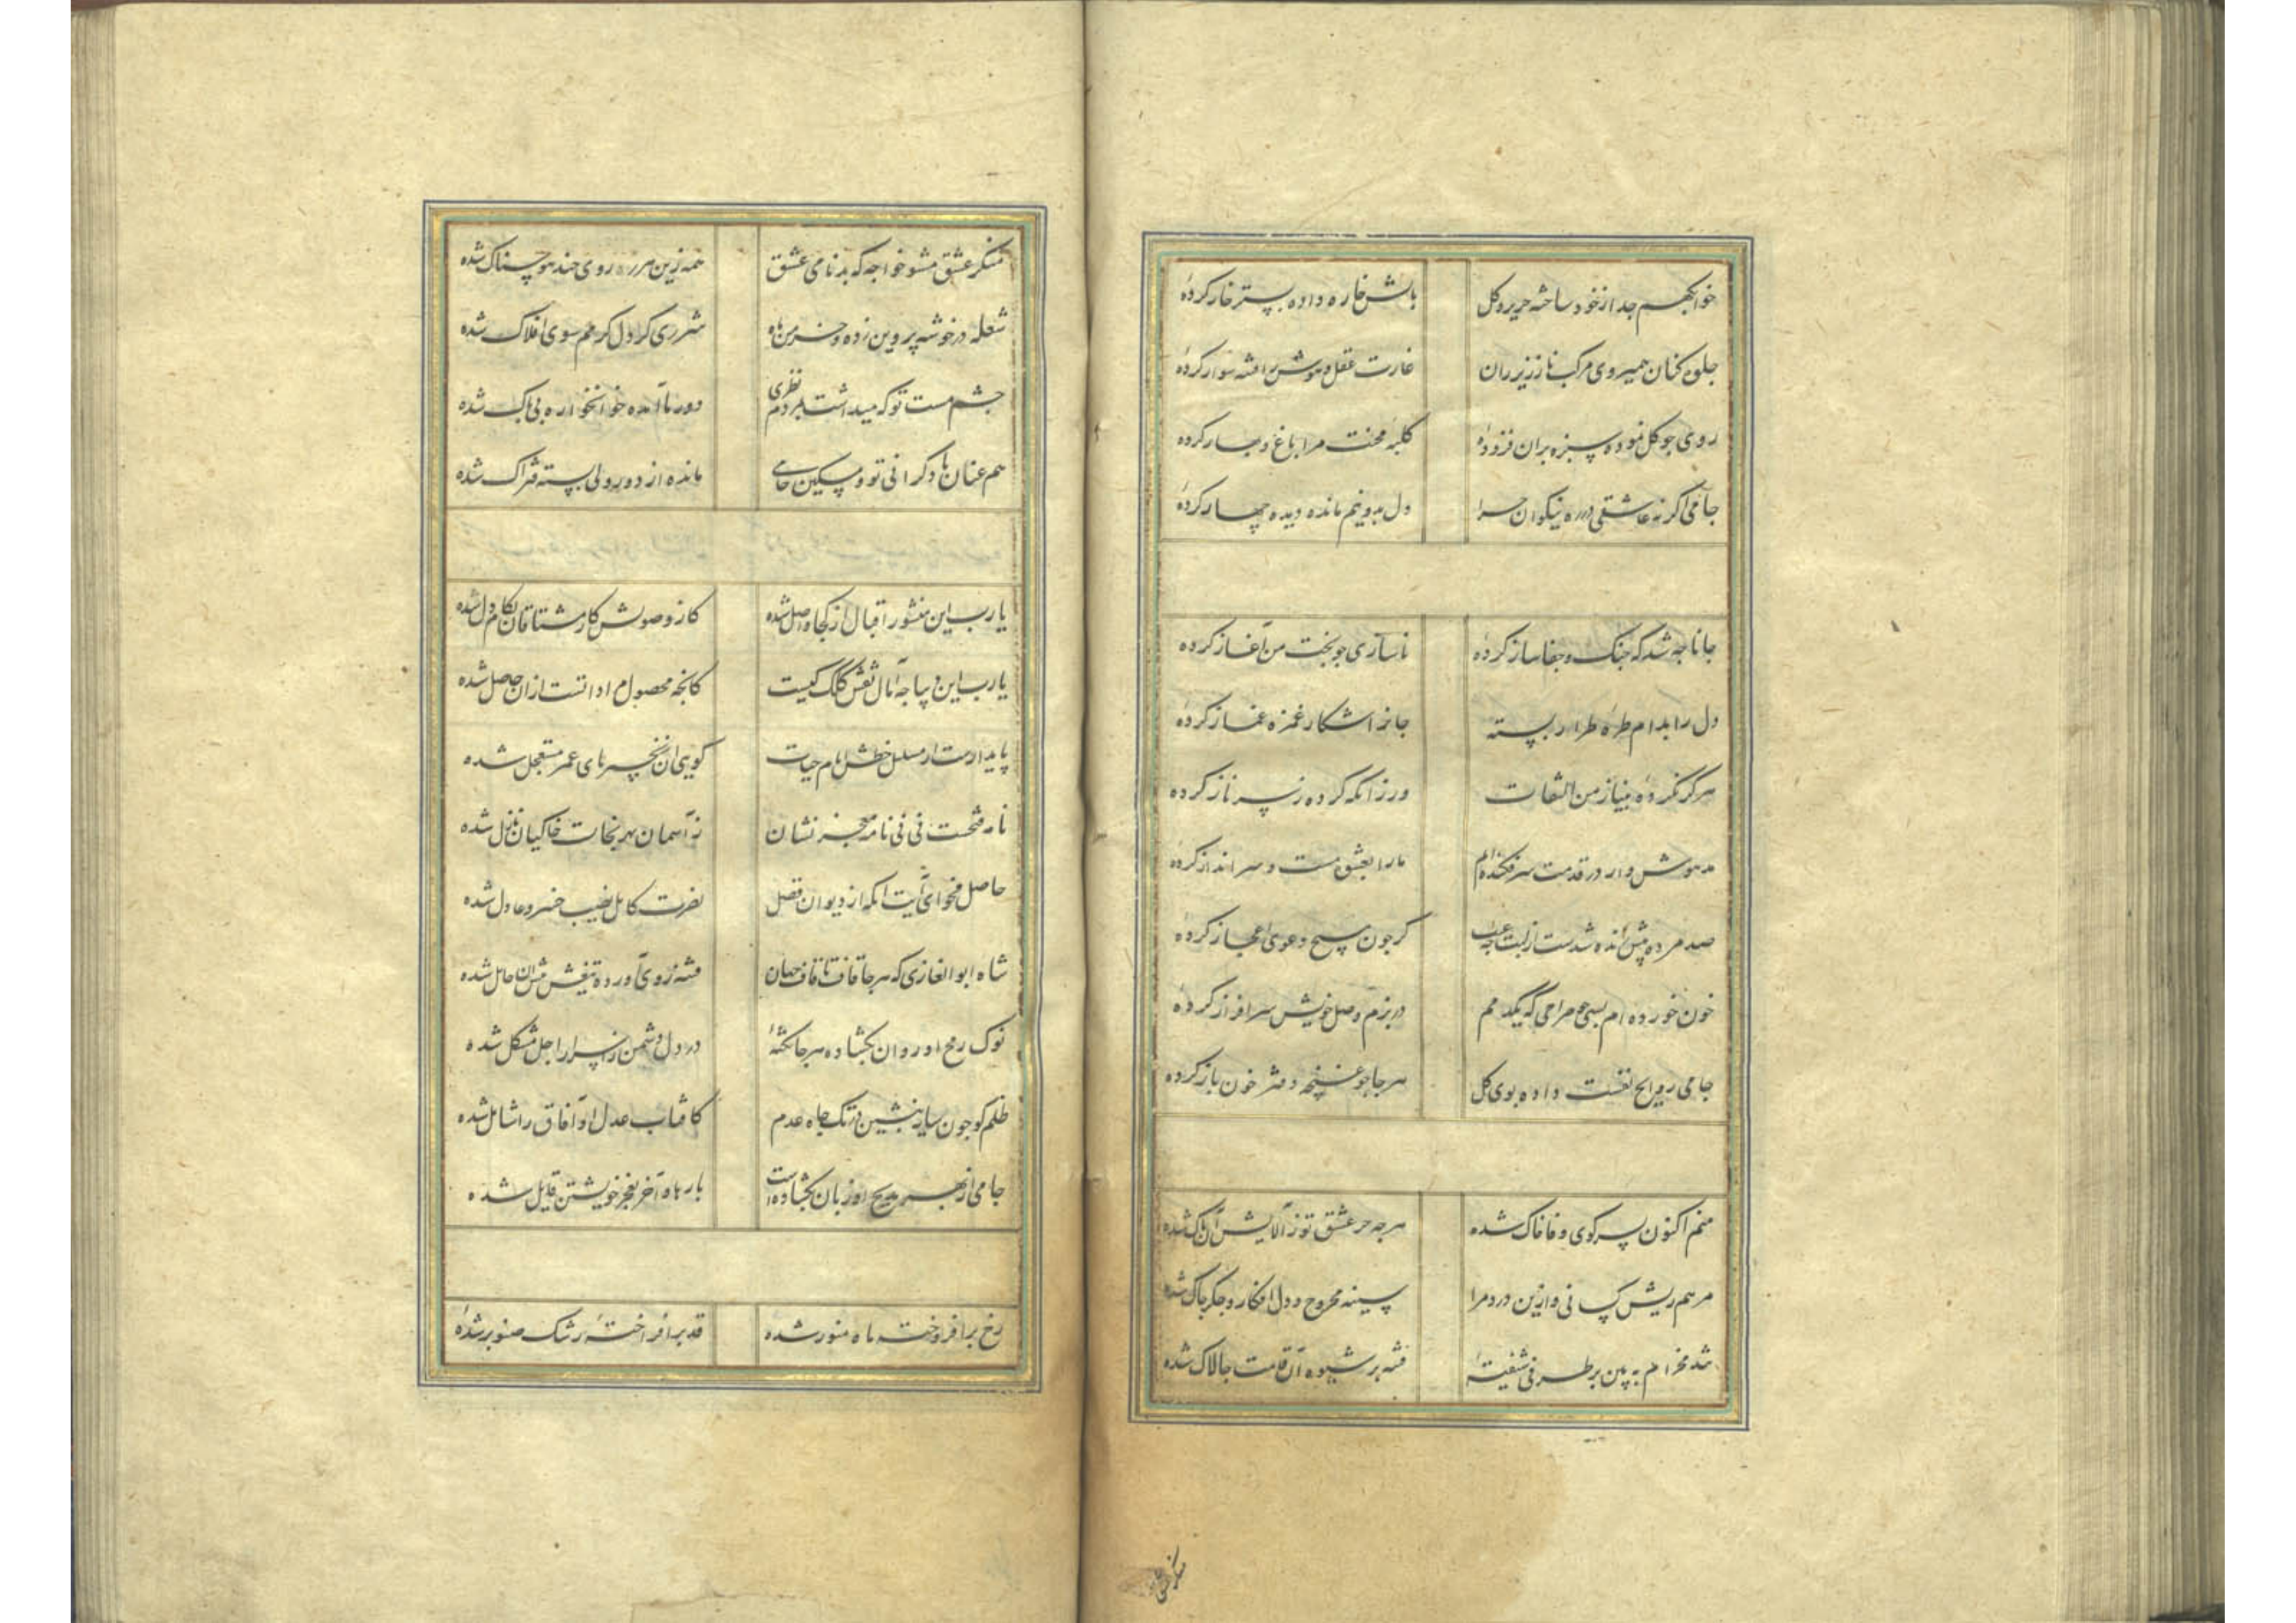 خوابگهم جدا ز خود ساخته حریر و کل بالش خاره داده بستر خار کرده
جلوه کنان همیروی مرکب ناز زیر ران غارت عقل و هوش را فتنه سوار کرده
روی چو کل نموده سبزه بران فزوده کلبه محنت مرا باغ و بهار کرده
جامی اکر نه عاشقی در ره نیکوان چرا دل بدو نیم مانده دیده چهار کرده
جانا چه شد که جنک و جفا ساز کرده ناسازی چو بخت من آغاز کرده
دل را بدام طره طرار بسته جانرا شکار غمزه غماز کرده
هرکز نکرده به نیاز من التفات ور زانکه کرده ز سر ناز کرده
مدهوش وار در قدمت سر فکنده ام ما را بعشق مست و سرانداز کرده
صد مرده بیش زنده شدست از لبت چه عجب کر چون مسیح دعوی اعجاز کرده
خون خورده ام بسی چو صراحی که یکدمم در بزم وصل خویش سرافراز کرده
جامی روایح نفست داده بوی کل هر جا چو غنچه دفتر خون باز کرده
منم اکنون بسر کوی وفا خاک شده هر چه جز عشق تو ز آلایش آن پاک شده
مرهم ریش کسانی و ازین درد مرا سینه مجروح و دل افکار و جکر چاک شده
شد مخرام به بین هر طرفی شیفته فتنه بر شیوه آن قامت چالاک شده
منکر عشق
منکر عشق مشو خواجه که بدنامی عشق همه زین هرزه روی چند هوسناک شده
شعله در خوشه پروین زده و خرمن ماه شرری کز دل کرمم سوی افلاک شده
چشم مست تو که میداشت بمردم نظری دور ما آمده خوانخواره بی باک شده
هم عنان باد کرانی تو و مسکین جامی مانده از دور ولی بسته فتراک شده
یارب این منشور اقبال از کجا واصل شده کز وصولش کار مشتاقان بکام دل شده
یارب این دیباچه آمال نقش کلک کیست کانچه محصول مرادانست ازان حاصل شده
پایدارست از سلسل خطش نام حیات کویی آن زنجیر پای عمر مستعجل شده
نامه فتحست نی نی نامه معجز نشان ز آسمان بهر نجات خاکیان نازل شده
حاصل فحوای آیت آنکه از دیوان فضل نصرت کامل نصیب خسرو عادل شده
شاه ابو الغازی که هر جا قاف تا قاف جهان فتنه روی آورده تیغش پیش آن حایل شده
نوک رمح او روان بکشاده هر جا نکته در دل دشمن ز اسرار اجل مشکل شده
ظلم کو چون سایه بنشین در تک چاه عدم کافتاب عدل او آفاق را شامل شده
جامی از بهر مدیح او زبان بکشاده است بارها و آخر بعجز خویشتن قایل شده
رخ برافروخته ماه منور شده قد برافراخته رشک صنوبر شده